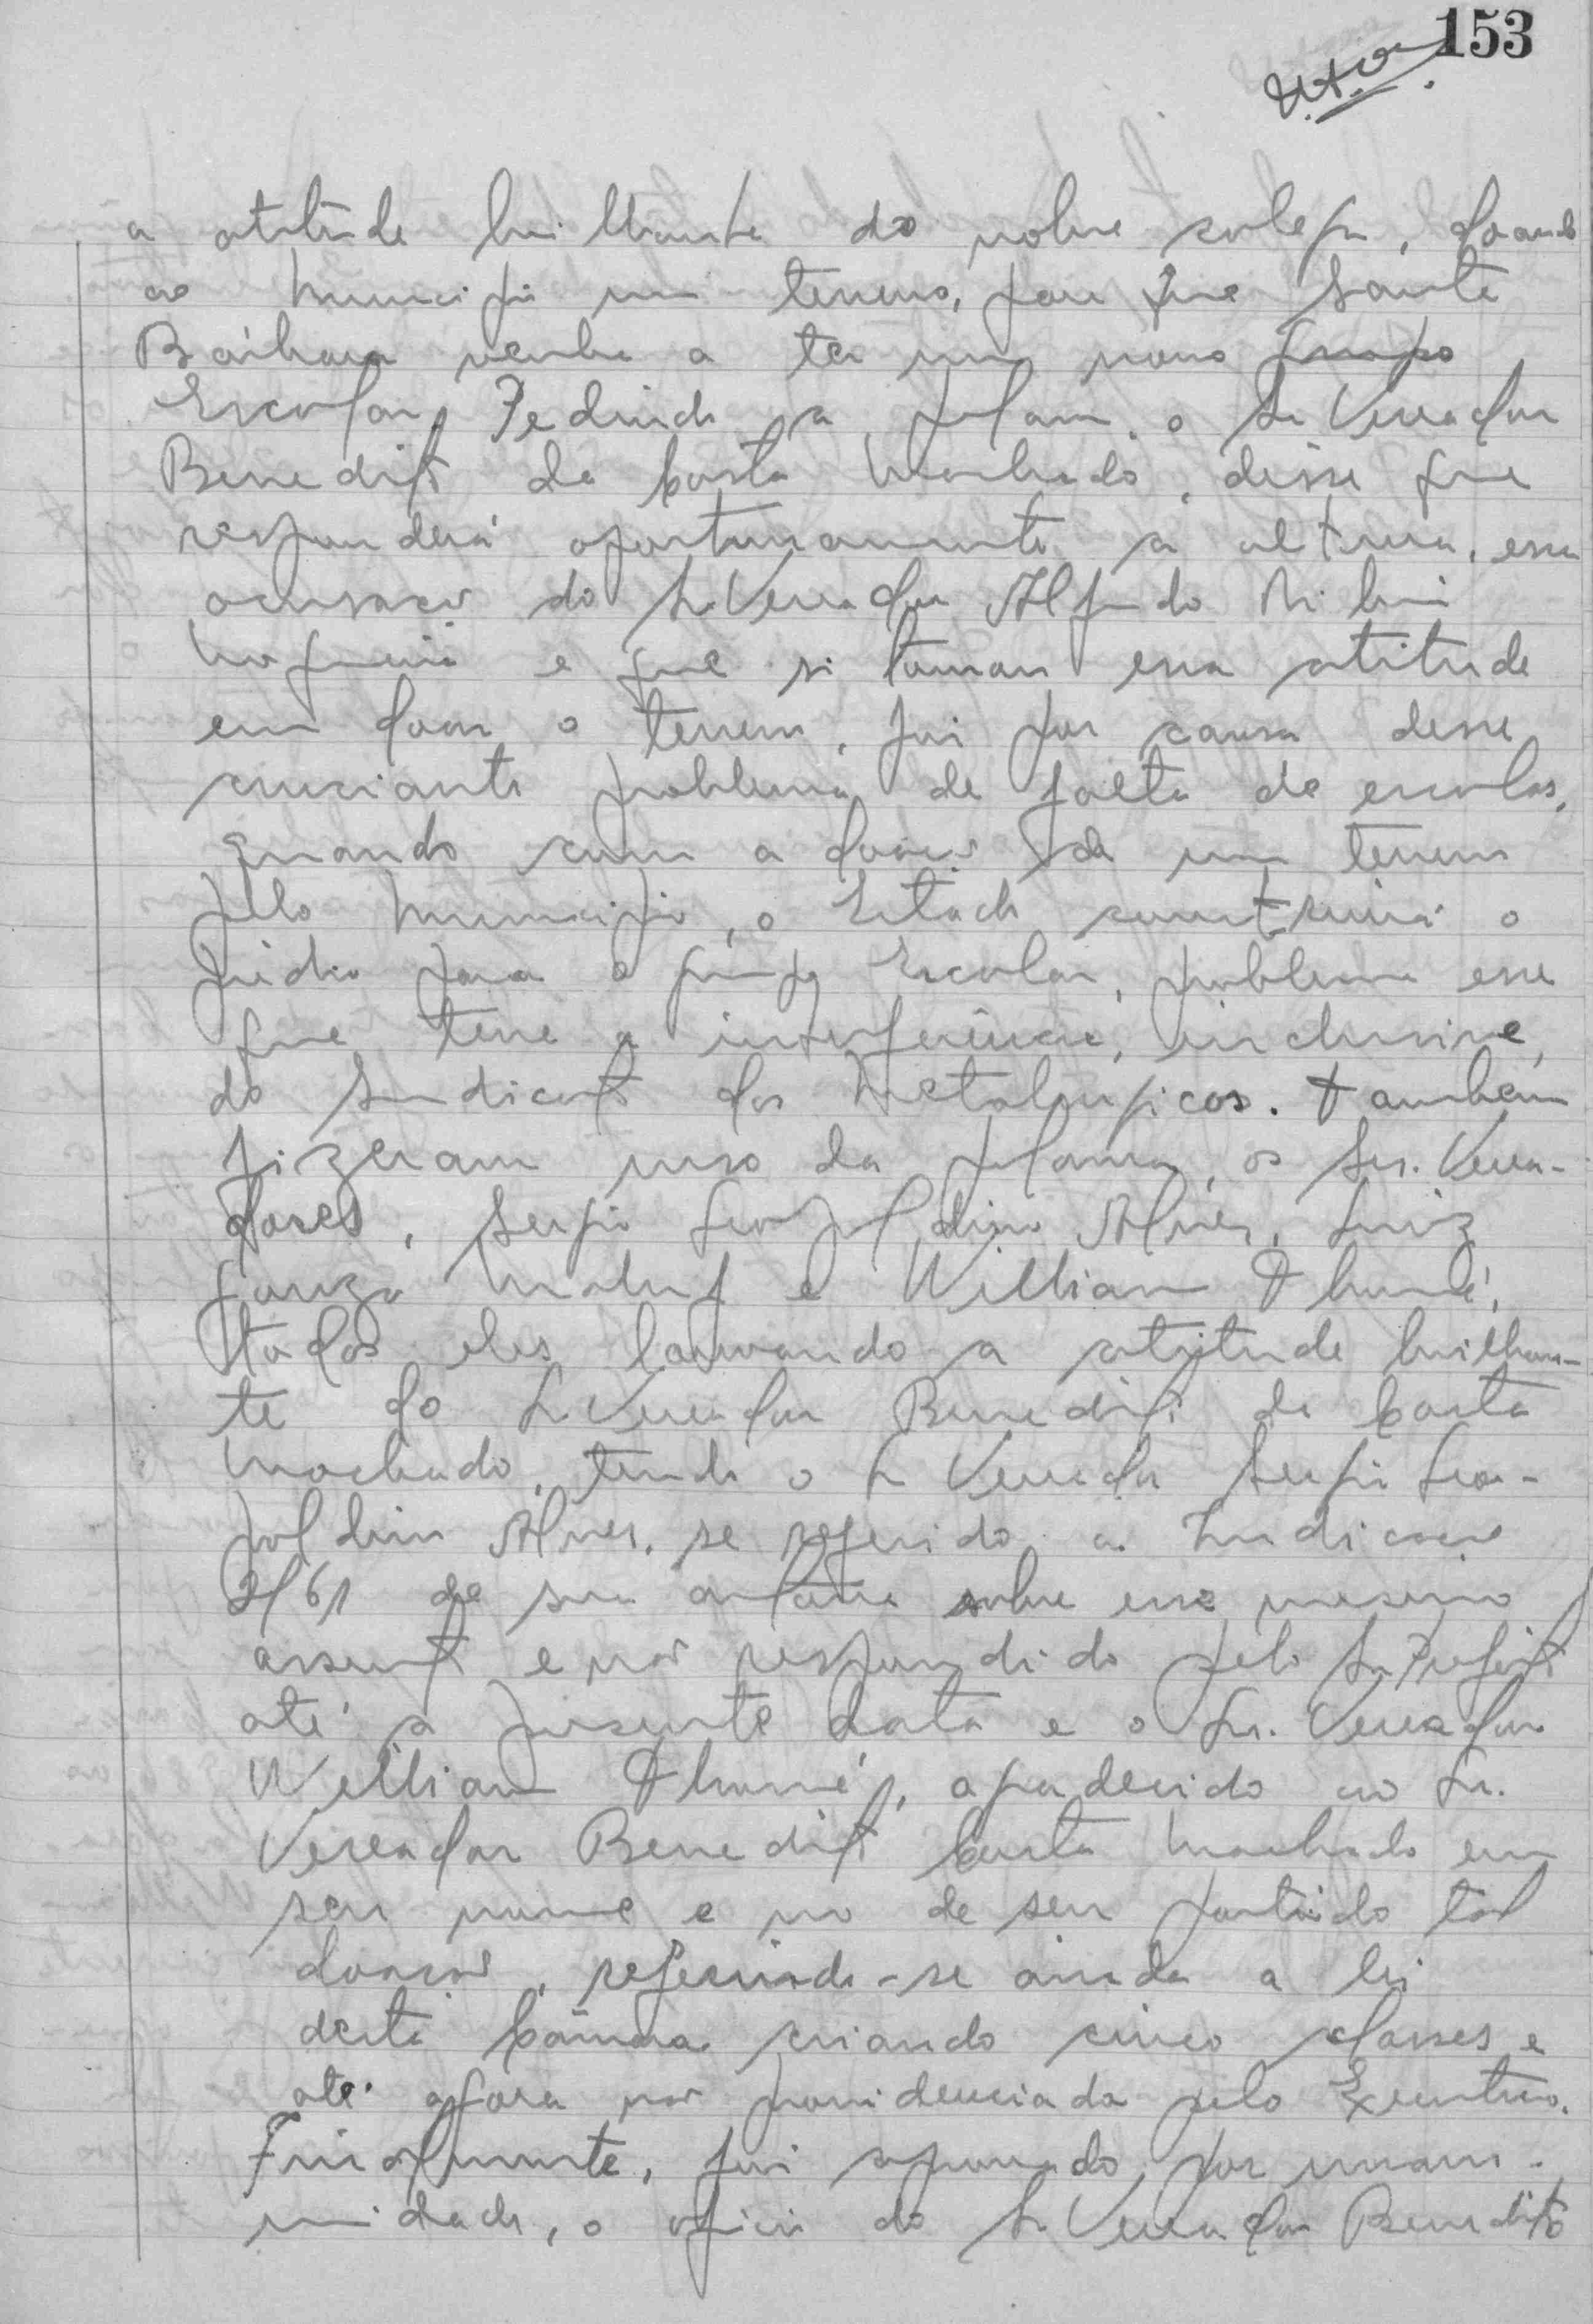 153
a atitude brilhante do nobre colega, doando
ao Municipio um terreno, para que Santa
Bárbara venha a ter um novo Grupo
Escolar. Pedindo a palavra, o Sr Vereador
Benedito da Costa Machado, disse que
responderá oportunamente à altura, essa
acusação do Sr. Vereador Alfredo
e que si tomou essa atitude
em doar o terreno, foi por causa desse
cruciante problema de falta de escolas,
quando com a doação de um terreno
pelo Municipio, o Estado construirá o
prédio para o Grupo Escolar, problema esse
que teve a interferência, inclusive,
do Sindicato dos Metalurgicos. Também
fizeram uso da palavra, os Srs. Verea-
dores, Sergio Leopoldino Alves, Luiz
Maluf e William
todos eles louvando a atitude brilhan-
te do Sr Vereador Benedito da Costa
Machado, tendo o Sr Vereador Sergio Leo-
poldino Alves, se referido a Indicação
2/61 de sua autoria sobre esse mesmo
assunto e não respondido pelo Sr. Prefeito
até a presente data e o Sr. Vereador
William agradecido ao Sr.
Vereador Benedito Costa Machado em
seu nome e no de seu partido tal
doação, referindo-se ainda a lei
desta Câmara criando cinco classes e
até agora não providenciada pelo Executivo.
Finalmente, foi aprovado por unani-
midade, o oficio do Sr Vereador Benedito